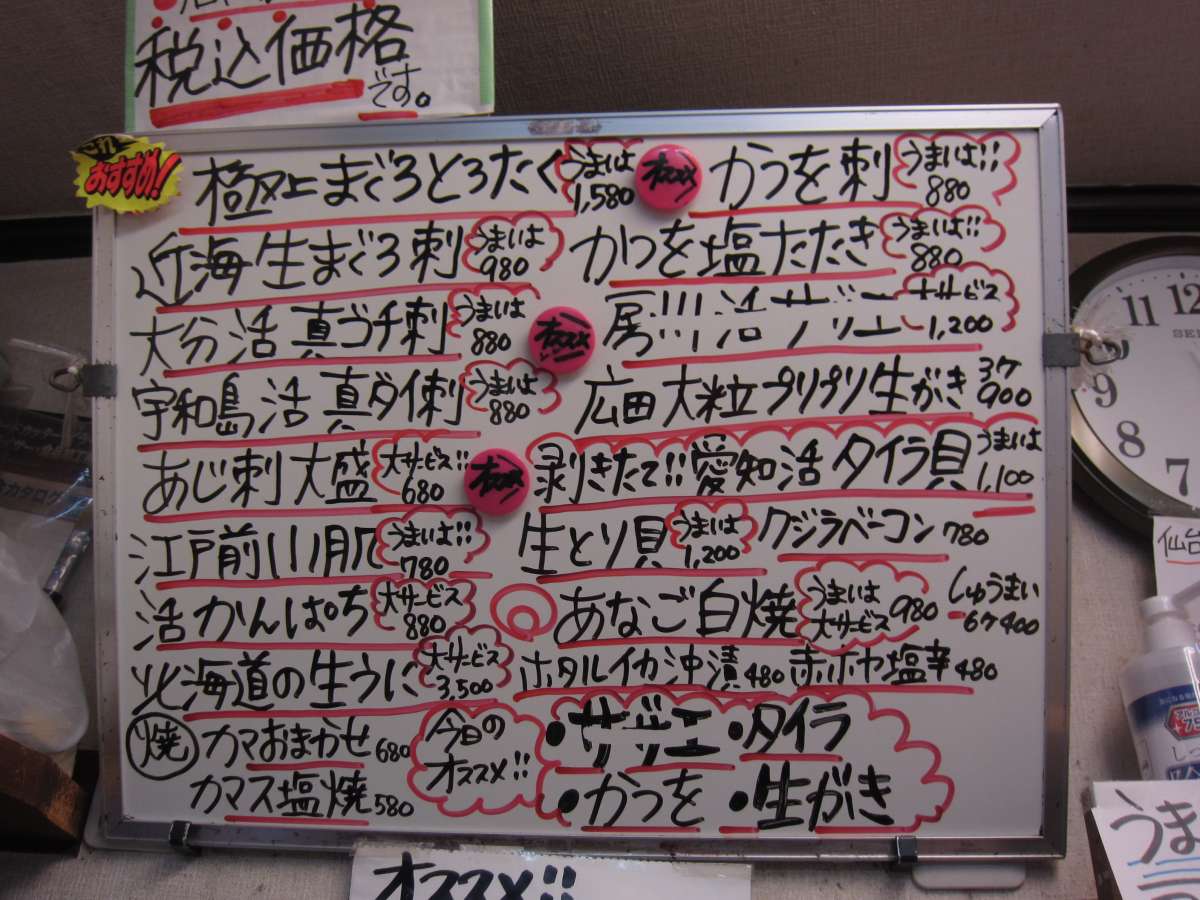 税込価格
です。
これ
おすすめ!
極上まぐろとろたく うまいよ 1,580
オススメ
かつを刺 うまいよ!! 880
近海生まぐろ刺 うまいよ 980
かつを塩たたき うまいよ!! 880
大分活真ゴチ刺 うまいよ 880
オススメ
活サザエ 大サービス 1,200
宇和島活真ダイ刺 うまいよ 880
広田大粒プリプリ生がき 3ケ 900
あじ刺大盛 大サービス!! 680
オススメ
剥きたて!!愛知活タイラ貝 うまいよ 1,100
江戸前小肌 うまいよ!! 780
生とり貝 うまいよ 1,200
クジラベーコン 780
活かんぱち 大サービス 880
あなご白焼 うまいよ 大サービス 980
しゅうまい 6ケ400
北海道の生うに 大サービス 3,500
ホタルイカ沖漬 480
赤ホヤ塩辛 480
焼 カマおまかせ 680
カマス塩焼 580
今日の
オススメ!!
・サザエ ・タイラ
・かつを ・生がき
オススメ!!
11 12
9
8
7
仙台
うま